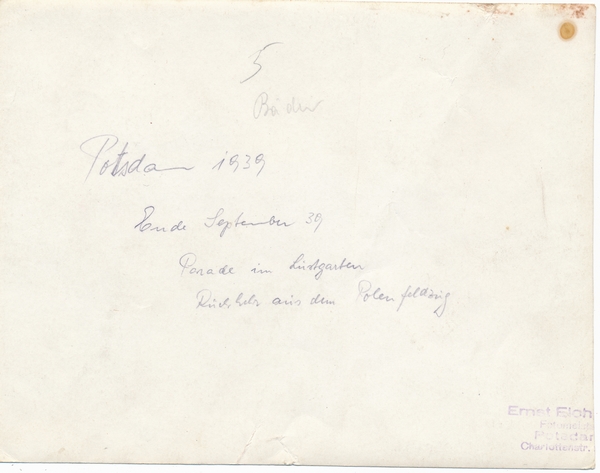 5
Potsdam 1939
Ende September 39
Parade im Lustgarten
Rückkehr aus dem Polenfeldzug
Ernst Eich
Potsdam
Charlottenstr.